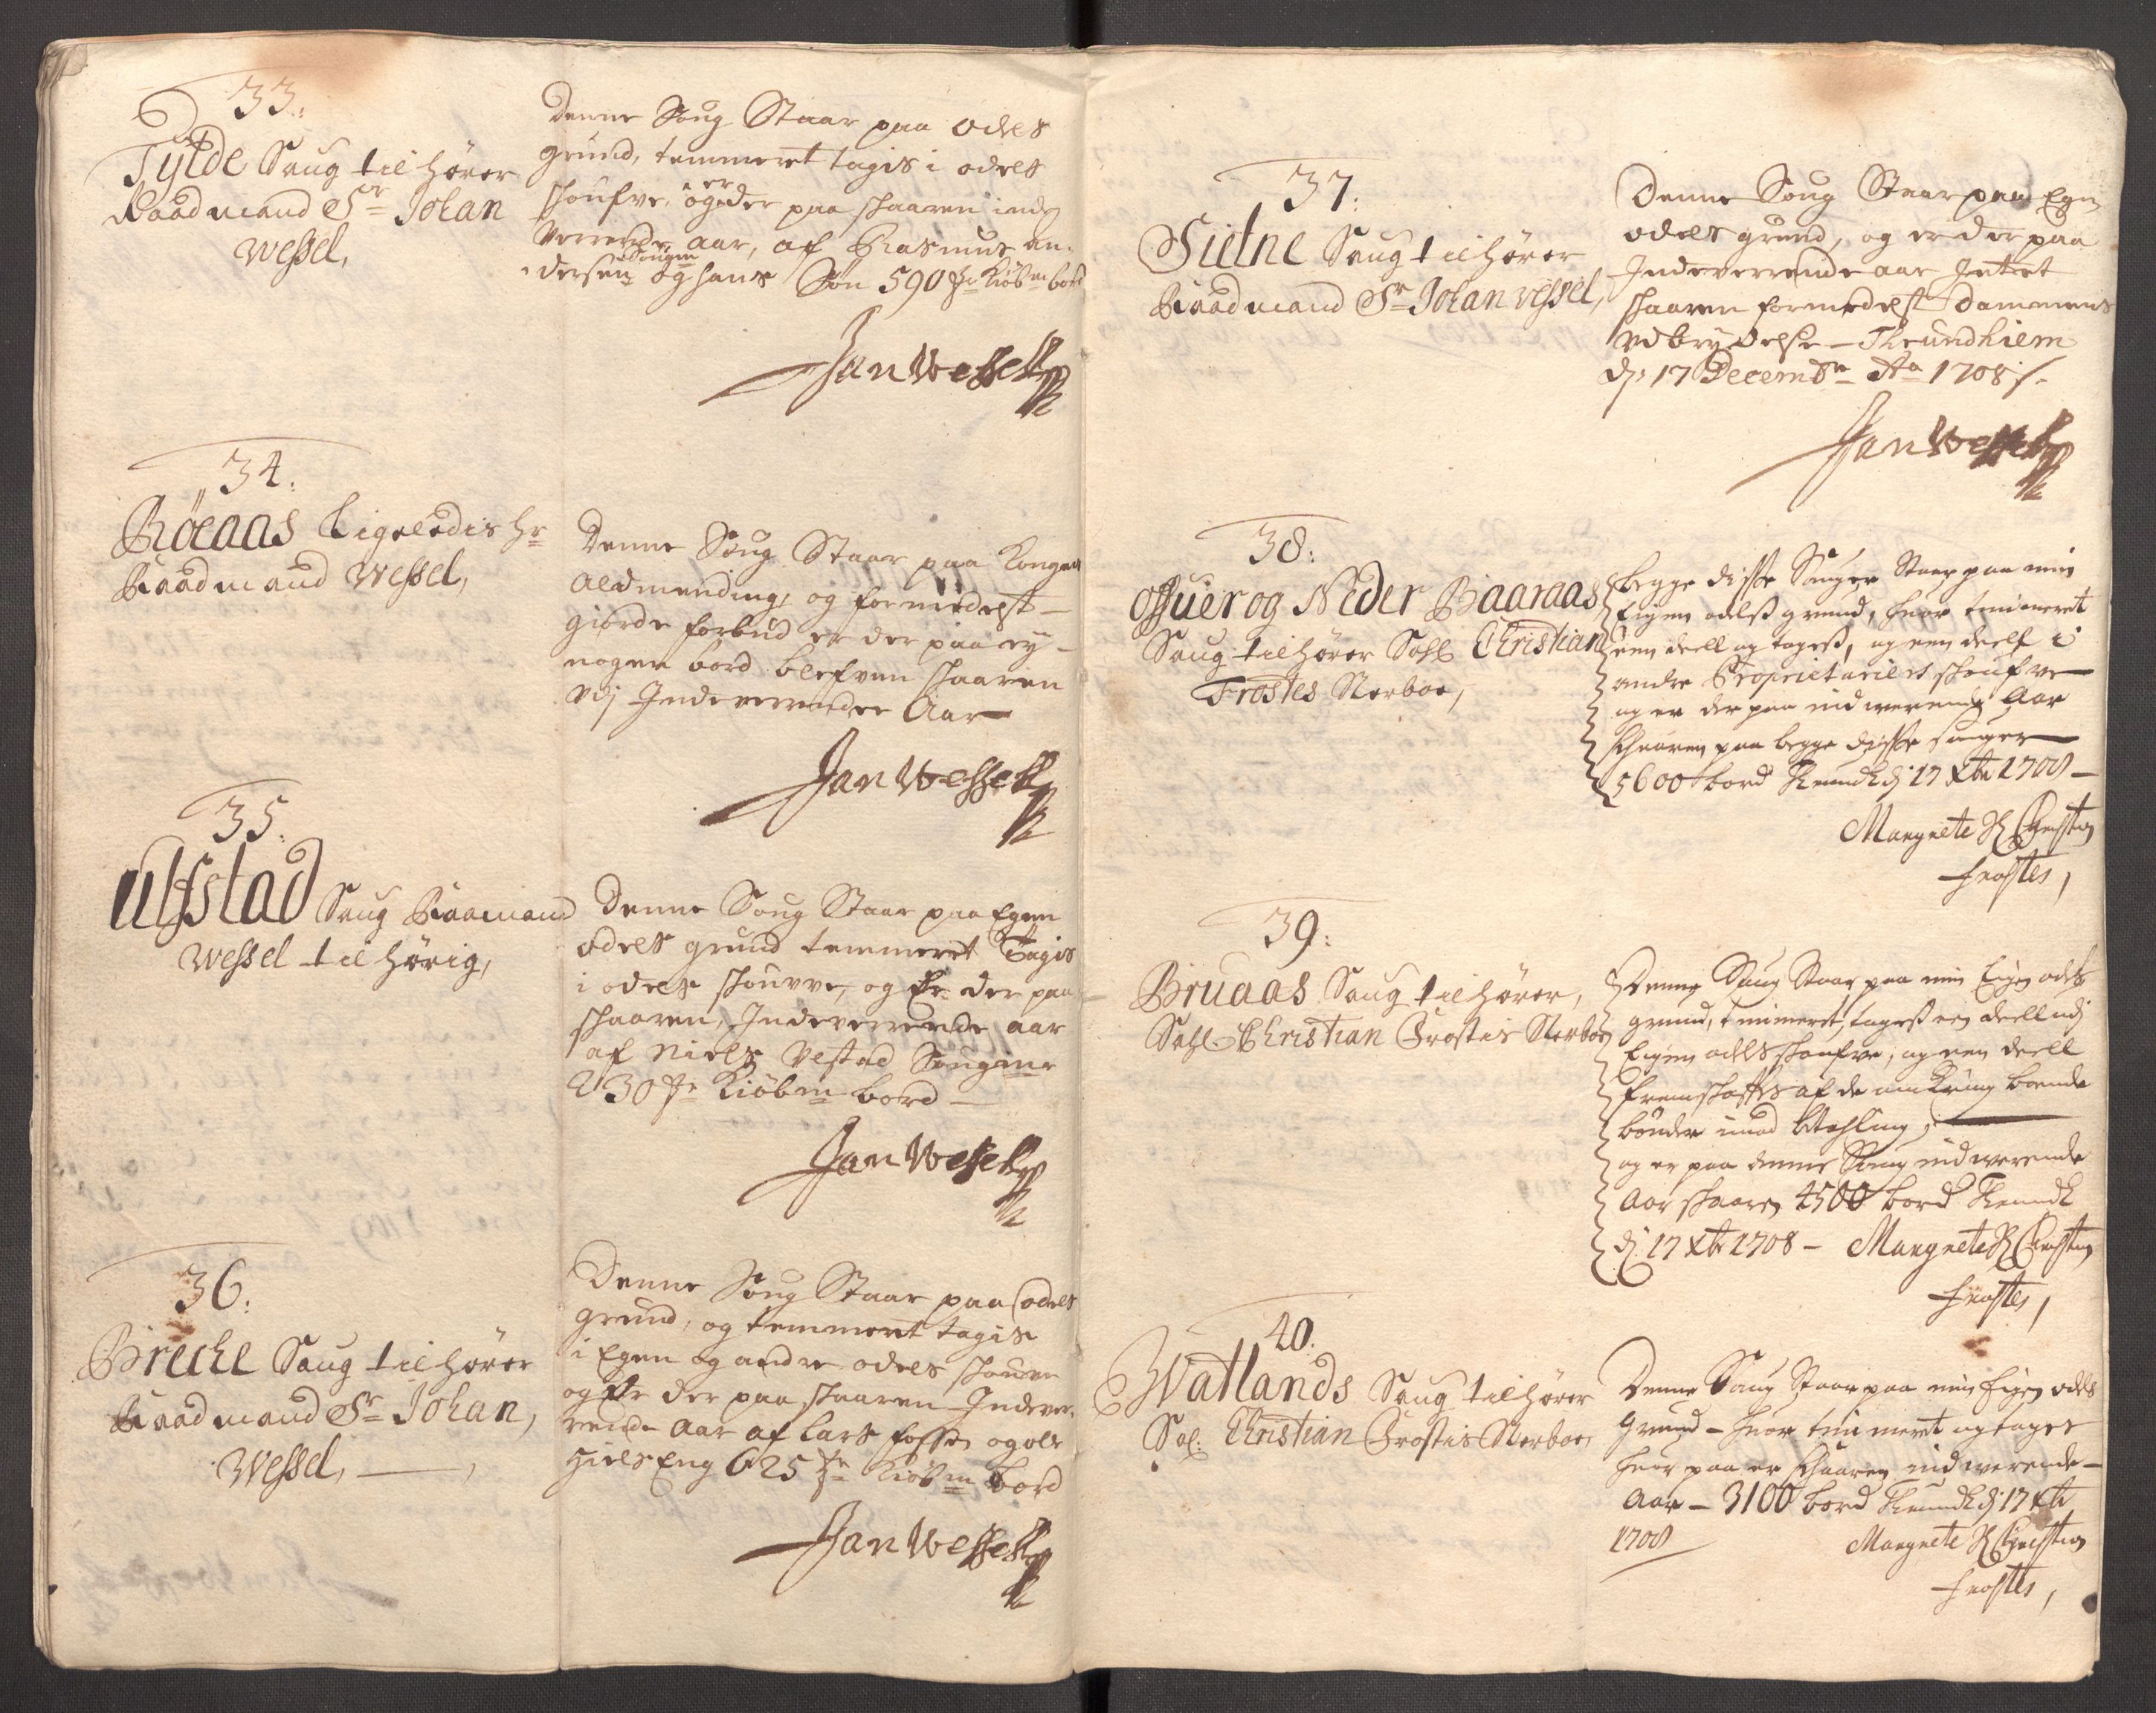 33.
Tylde Saug tilhører
Raadmand Sr Johan
Wessel,
Denne Soug Staar paa odels
grund, temmeret tagis i odels
skoufve, og er der paa skaaren inde
Verrende aar, af Rasmus an-
dersen Sougm og hans Søn 590 st Kiöbm bord
Jan Wessell
34.
Röeaas Ligeledis Hr
Raadmand Wessel,
Denne Soug Staar paa Kongens
aldmending, og formedelst
giorde forbud er der paa ey
nogen bord blefven skaaren
Udj Indeverrender Aar
Jan Wessell
35.
Ulfstad Saug Raamand
Wessel tilhörig,
Denne Soug Staar paa Egen
odels grund temmeret Tagis
i odels skouvve, og Er der paa
skaaren, Indeverrende aar
af Niels Vlstad Sougmr
230 st Kiöbm bord
Jan Wessell
36.
Breche Saug tilhører
Raadmand Sr Johan,
Wessel,
Denne Soug Staar paa odels
grund, og temmert tagis
i Egen og andre odels skouve
og Er der paa skaaren Indever-
rende Aar af Lars fosse og ole
Hielseng 625 st Kiöbm bord
Jan Wessell
37.
Sietne Saug tilhører
Raadmand Sr Johan Wessel,
Denne Soug Staar paa Egen
odels grund, og er der paa
Indeverrende aar Intet
skaaren formedelst Dammens
Udbrydelse - Thrundhiem
dj 17 Decembr Ao 1708
Jan Wessell
38.
Ofuer og Neder Baaraas
Saug tilhører Sahl Christian
Frostes Sterboe,
Begge disse Sauger Staar paa min
Eigen odelss grund, huor temmeret
een deell og tagess, og een deell i
andre Proprietariers skoufve
og er der paa indwerende Aar
skaaren paa begge disse sauger
5600 bord Thrundh dj 17 Xbr 1708
Margrete Sl Christian
Frostes,
39.
Bruaas Saug tilhører,
Sahl Christian Frostis Sterboe
Denne Saug Staar paa min Eigen odels
grund, temmeret, tagess een deell udj
Eigen odels skoufve, og een deell
fremskaffes af de omkring boende
bønder imod betahling,
og er paa denne Saug indwerende
Aar skaaren 4500 bord Thrundh
dj 17 Xbr 1708 - Margrete Sl Christian
Frostes,
40.
Watlands Saug tilhører
Sal: Christian Frostis Sterboe,
Denne Saug Staar paa min Eigen odels
Grund - huor temmeret og tages
huor paa er skaaren indwerende
Aar - 3100 bord Thrundh dj 17 Xbr
1708
Margrete Sl Christian
Frostes,